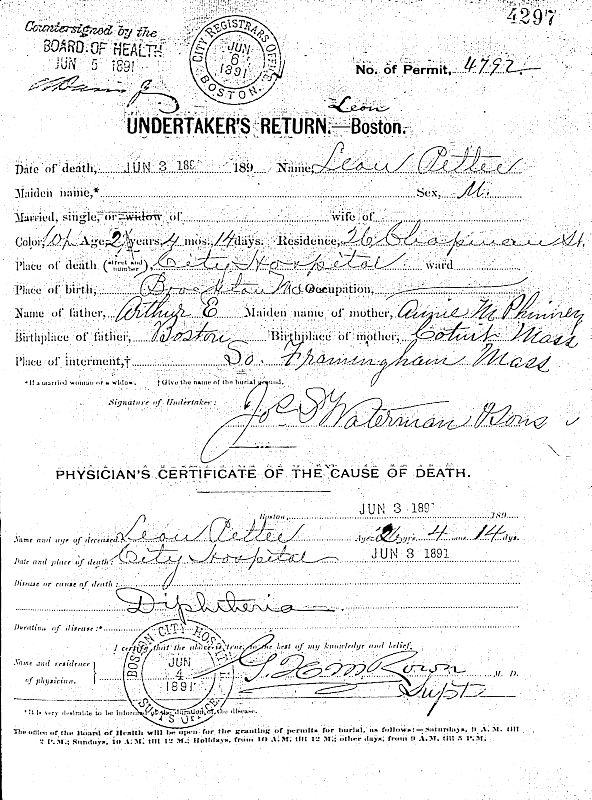 4297
Countersigned by the
BOARD OF HEALTH
JUN 5 1891
CITY REGISTRARS OFFICE,
JUN
6
1891
BOSTON.
No. of Permit, 4792.
Leon
UNDERTAKER'S RETURN.—Boston.
Date of death, JUN 3 189 189 Name, Leon Pettee
Maiden name,* Sex, M.
Married, single, or widow of wife of
Color, Age, 2 years, 4 mos. 14 days. Residence, 26 Chapman St.
Place of death (street and number), City Hospital ward
Place of birth, Brookline Mass Occupation,
Name of father, Arthur E Maiden name of mother, Annie M Phinney
Birthplace of father, Boston Birthplace of mother, Cotuit Mass
Place of interment,† So. Framingham Mass
*If a married woman or a widow. † Give the name of the burial ground.
Signature of Undertaker: Jos S Waterman & Sons
PHYSICIAN'S CERTIFICATE OF THE CAUSE OF DEATH.
Boston, JUN 3 189 189
Name and age of deceased: Leon Pettee Age: 2 yrs. 4 mos. 14 dys.
Date and place of death: City Hospital JUN 3 1891
Disease or cause of death:
Diphtheria.
Duration of disease:*
I certify that the above is true, to the best of my knowledge and belief.
Name and residence of physician. M. D.
Supt
BOSTON CITY HOSPITAL
JUN
4
1891
SUPT'S OFFICE.
*It is very desirable to be informed of the duration of the disease.
The office of the Board of Health will be open for the granting of permits for burial, as follows:—Saturdays, 9 A.M. till
2 P.M.; Sundays, 10 A.M. till 12 M.; Holidays, from 10 A.M. till 12 M.; other days, from 9 A.M. till 5 P.M.